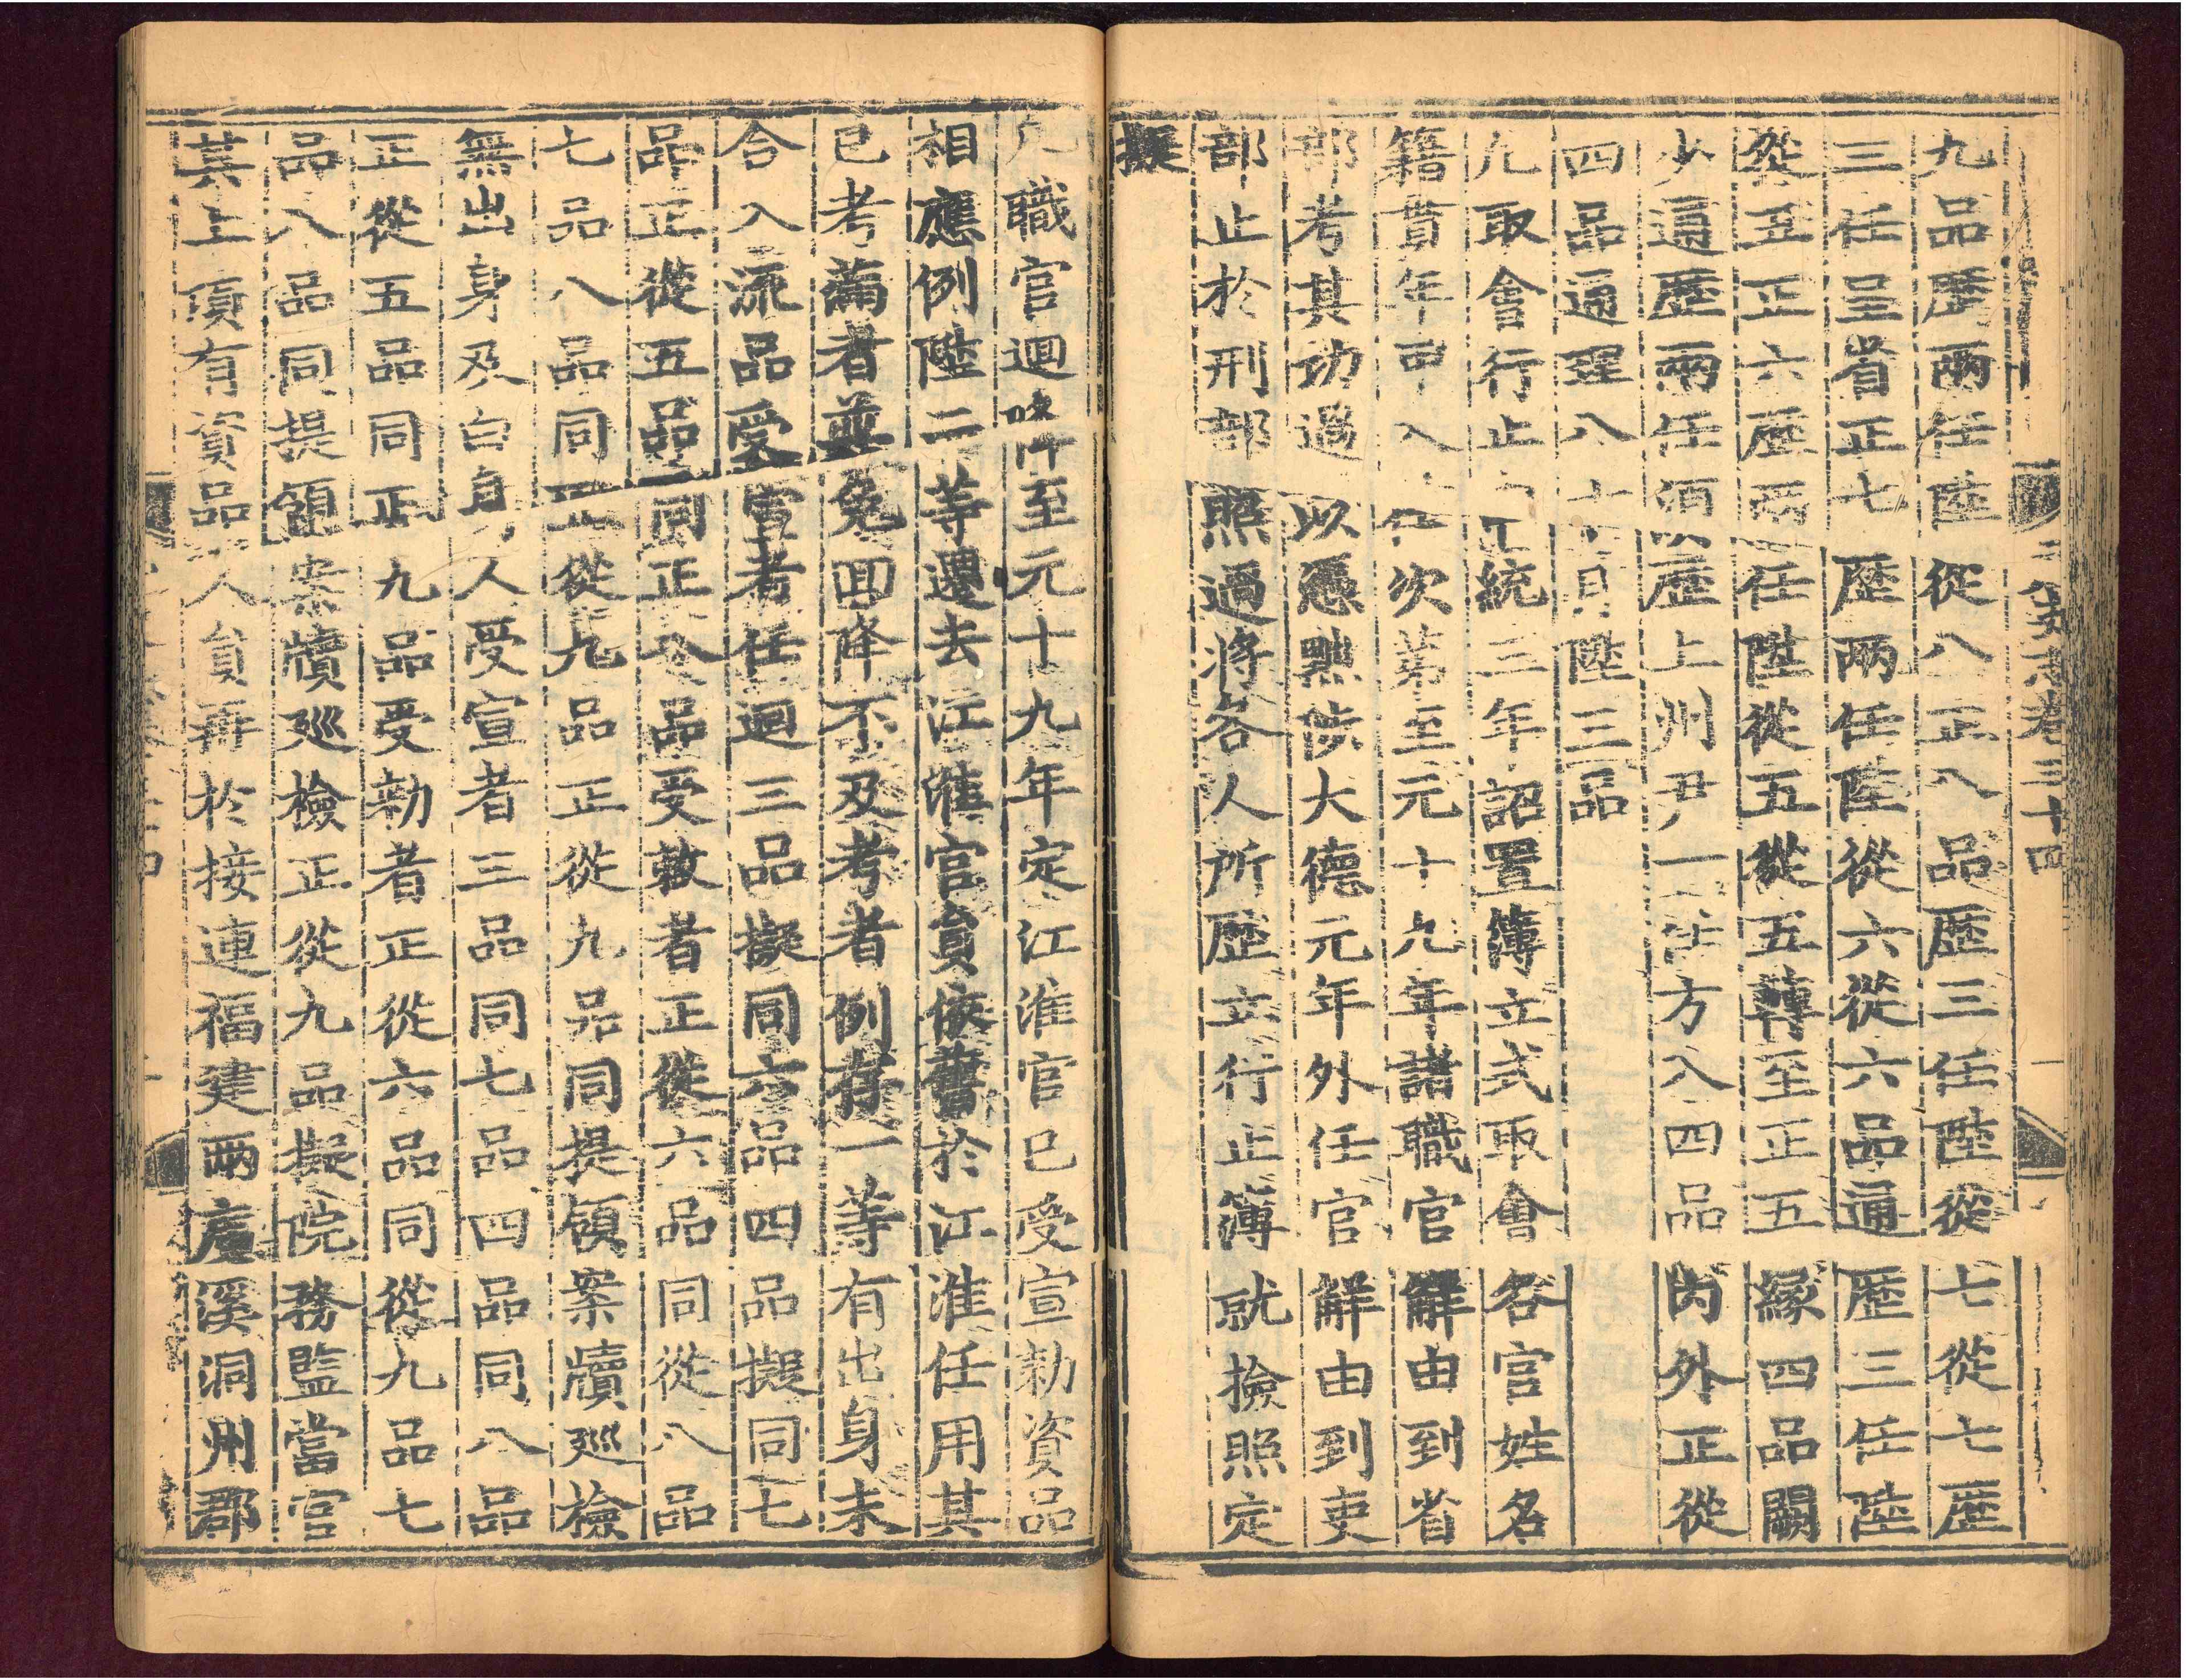 九品歷兩任陞從八正八品歷三任陞從七從七歷
三任呈省正七歷兩任陞從六從六品通歷三任陞
從五正六歷兩任陞從五從五轉至正五緣四品闕
少通歷兩任須歷上州尹一任方入四品內外正從
四品通理八十月陞三品
凡取會行止中統三年詔置簿立式取會各官姓名
籍貫年甲入仕次第至元十九年諸職官解由到省
部考其功過以憑黜陟大德元年外任官解由到吏
部止於刑部照過將各人所歷立行止簿就檢照定
擬
凡職官迴降至元十九年定江淮官已受宣勑資品
相應例陞二等遷去江淮官員依舊於江淮任用其
已考滿者並免回降不及考者例存一等有出身未
合入流品受宣者任迴三品擬同六品四品擬同七
品正從五品同正八品受敕者正從六品同從八品
七品八品同正從九品正從九品同提領案牘巡檢
無出身及白身人受宣者三品同七品四品同八品
正從五品同正九品受勑者正從六品同從九品七
品八品同提領案牘巡檢正從九品擬院務監當官
其上項有資品人員再於接連福建兩廣溪洞州郡
志卷三十四